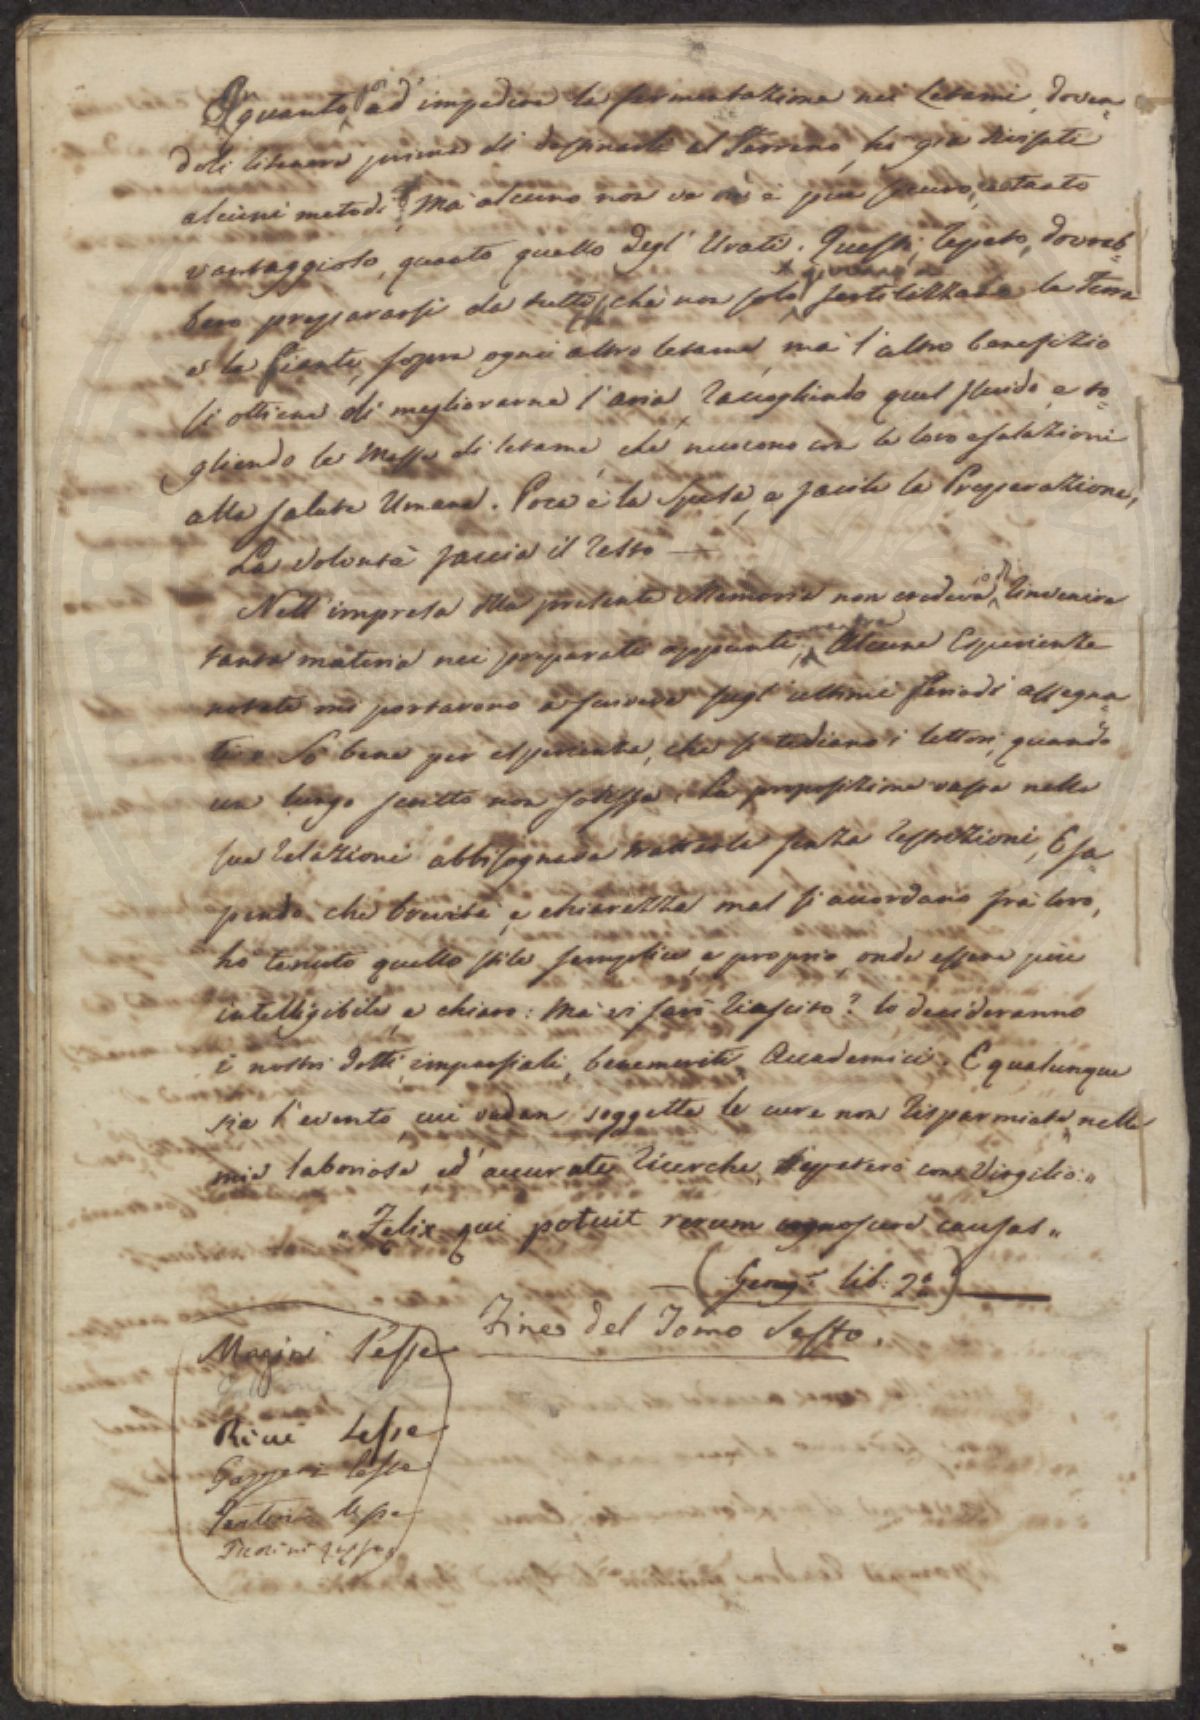 In quanto poi ad' impedire la fermentazione nei Letami, doven=
doli tenere prima di destinarli al Terreno, ho già divisati
alcuni metodi; Ma alcuno non ve n'è più sicuro, e tanto
vantaggioso, quanto quello degl' Urati. Questi, repeto, dovreb=
bero prepararsi da tutti, chè non solo giovano a fertilizzare la Terra
e le Piante, sopra ogni altro letame, ma l'altro benefizio
si ottiene di migliorarne l'aria, raccogliendo quel fluido, e to=
gliendo le Masse di letame, che nuocono con le loro esalazioni
alla salute Umana. Poca è la Spesa, e facile la Preparazione,
La volontà faccia il resto —
Nell' impresa della presente Memoria non credevo io di rinvenire
tanta materia nei preparati appunti, mentre alcune Esperienze
notate mi portarono a scrivere sugl' ultimi Periodi assegna=
ti. So bene per esperienza, che si tediano i lettori, quando
un lungo scritto non . La proposizione vasta nelle
sue relazioni abbisognava trattarla senza restrizioni, E sa=
pendo che brevità, e chiarezza mal si accordano frà loro,
hò tenuto quello stile semplice, e proprio, onde essere più
intelligibile, e chiaro: Ma vi sarò riuscito? lo decideranno
i nostri dotti, imparziali, benemeriti Accademici. E qualunque
sia l'evento, cui vadan soggette le cure non risparmiate nelle
mie laboriose, ed' accurate ricerche, repeterò con Virgilio: "
" Felix qui potuit rerum cognoscere causas "
— (Georg: lib: 2°) —
Fine del Tomo Sesto.
Magini lesse
Ricci Lesse
Gazzeri lesse
lesse
lesse